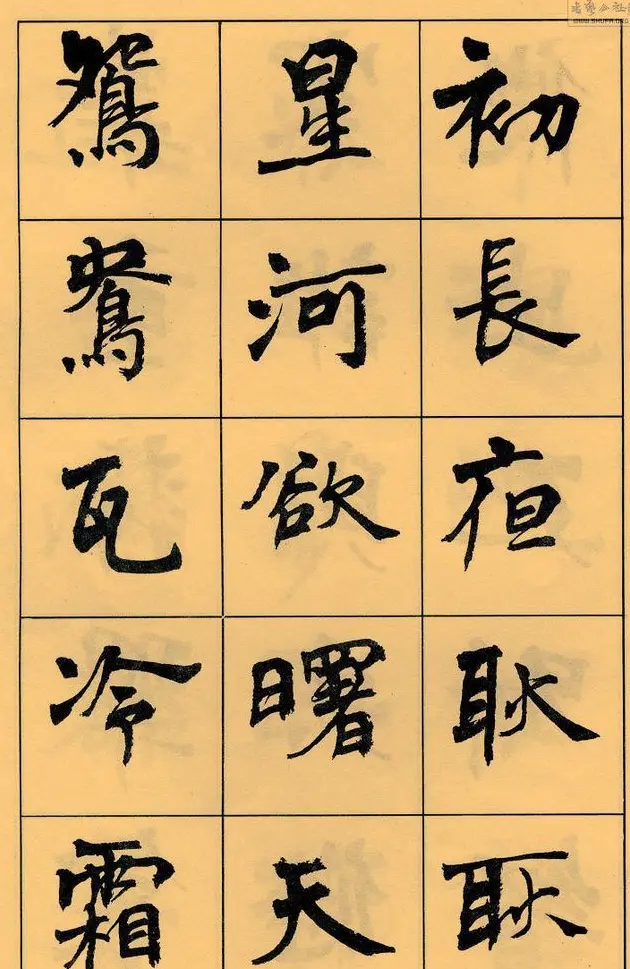 初長夜耿耿
星河欲曙天
鴛鴦瓦冷霜
WWW.SHUFA.ORG